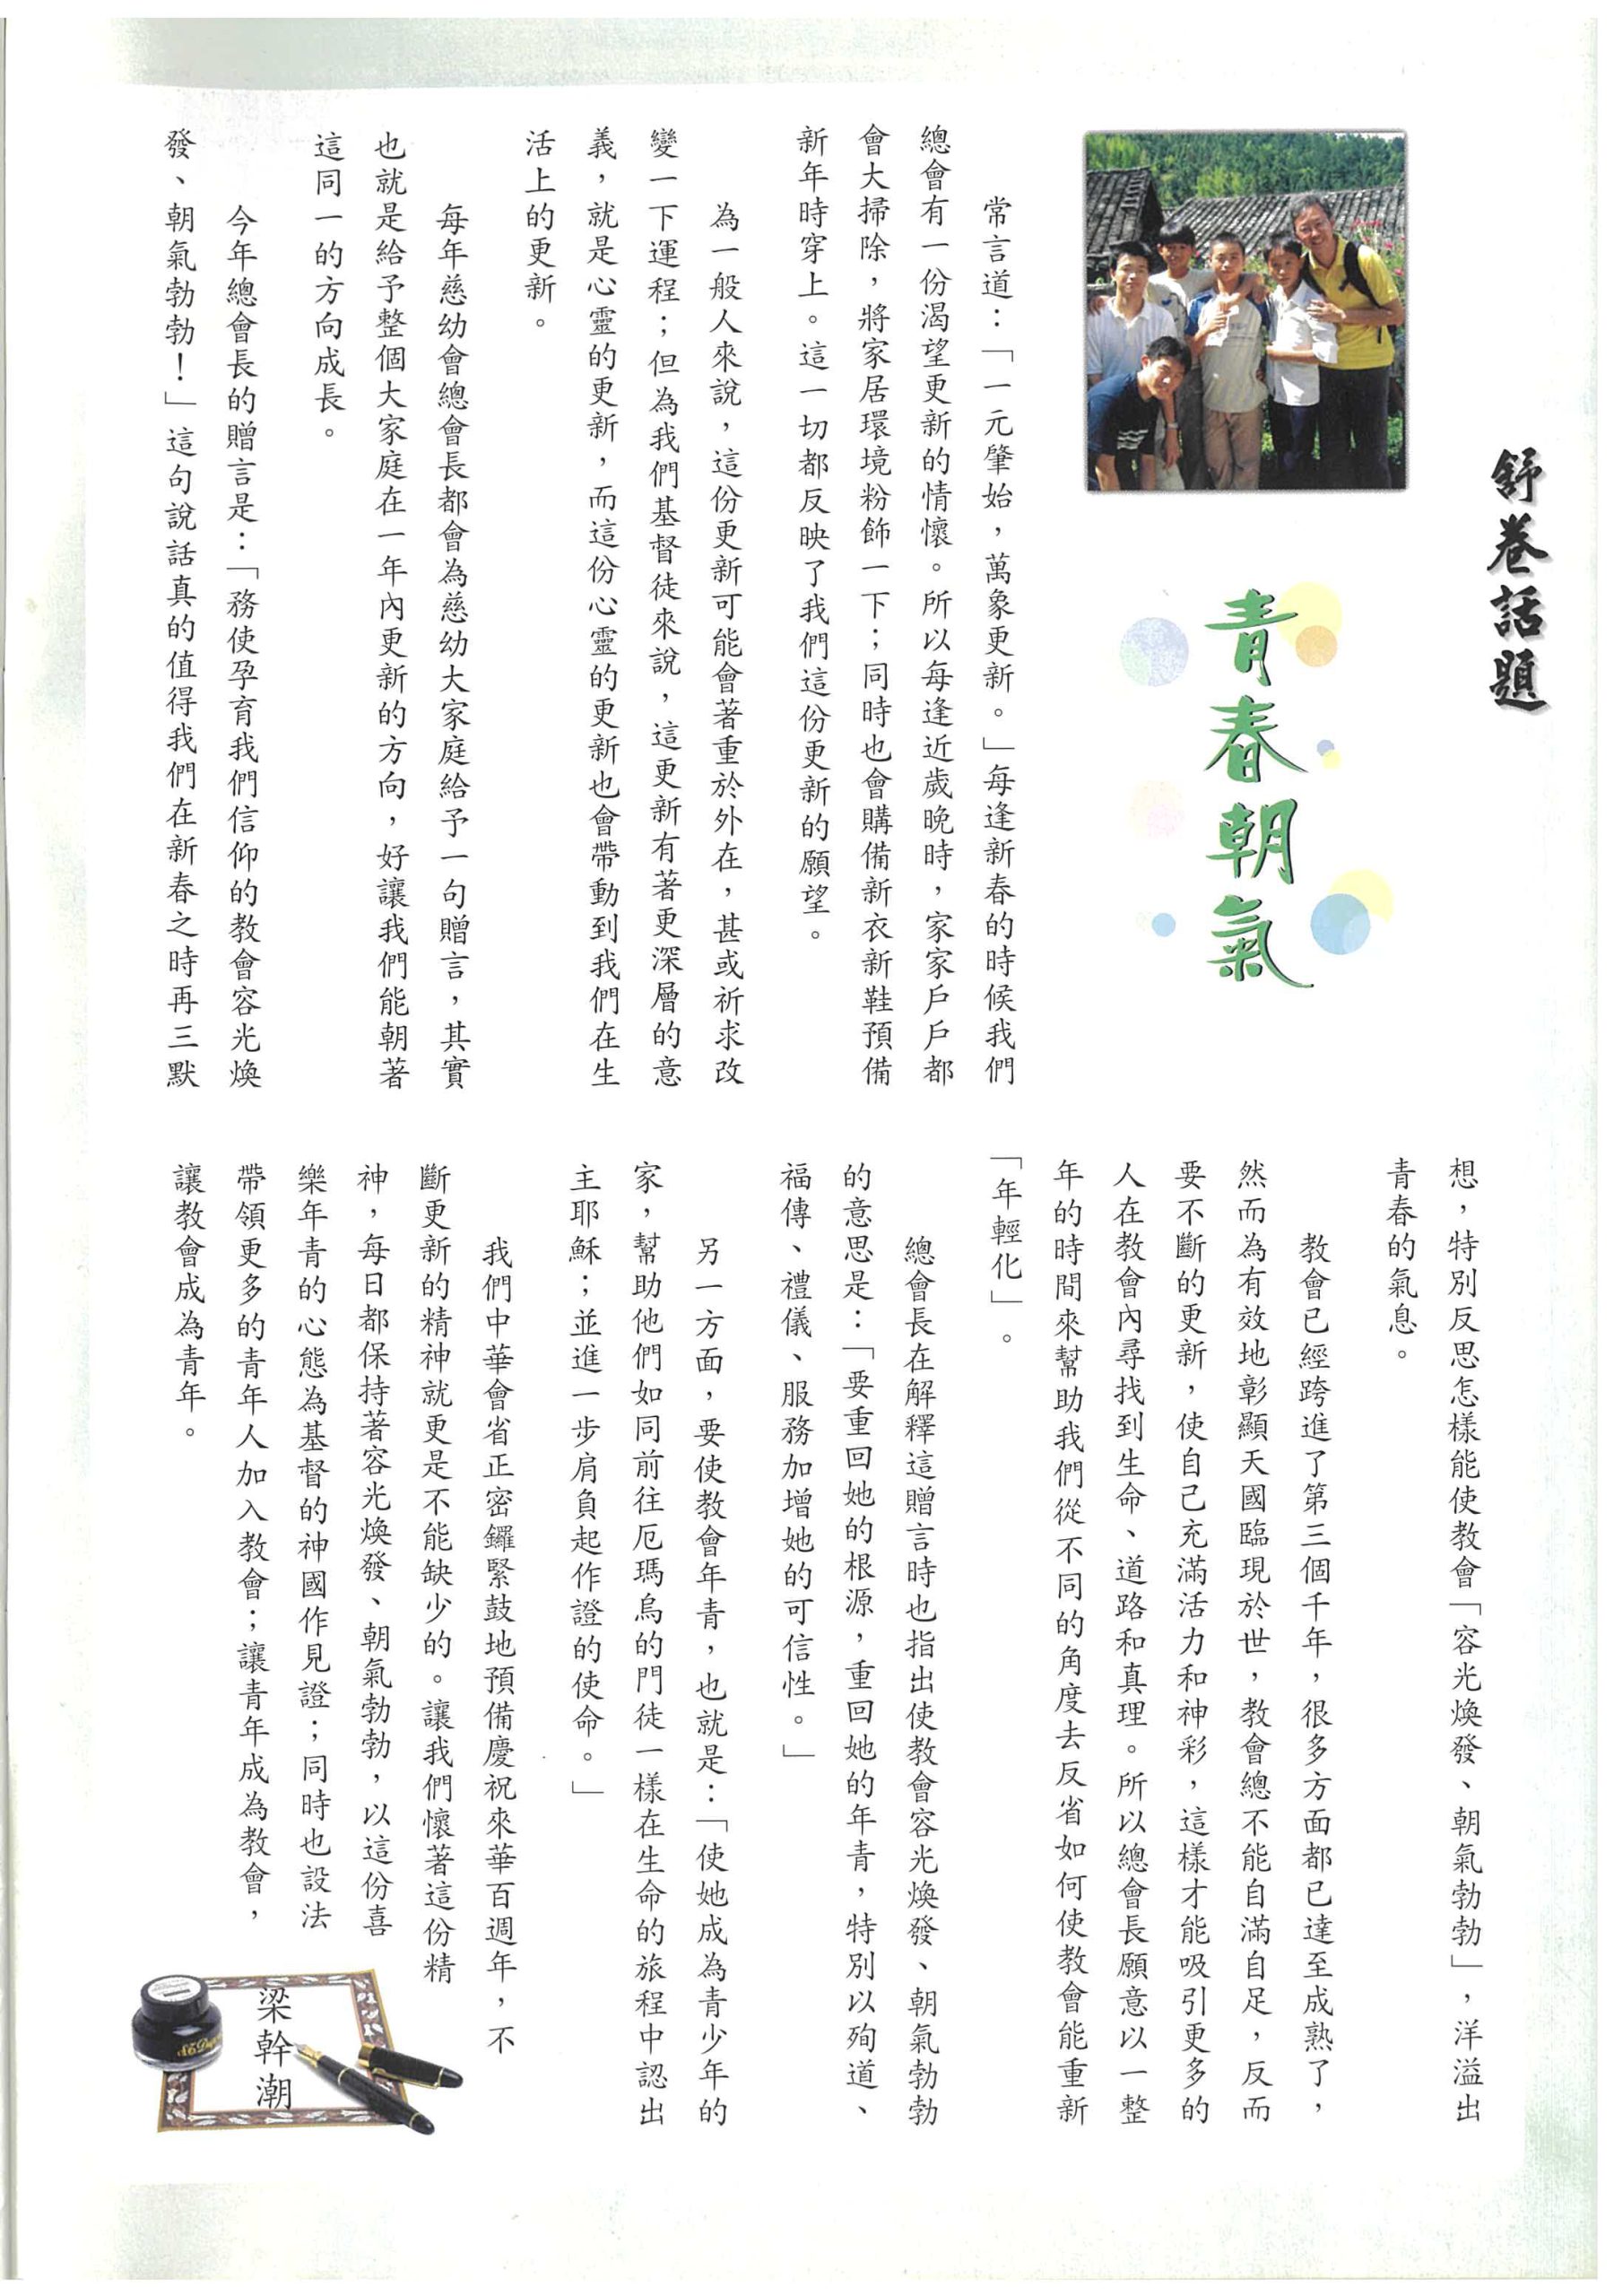 舒卷話題
青春朝氣
常言道：「一元肇始，萬象更新。」每逢新春的時候我們
總會有一份渴望更新的情懷。所以每逢近歲晚時，家家戶戶都
會大掃除，將家居環境粉飾一下；同時也會購備新衣新鞋預備
新年時穿上。這一切都反映了我們這份更新的願望。
為一般人來說，這份更新可能會著重於外在，甚或祈求改
變一下運程；但為我們基督徒來說，這更新有著更深層的意
義，就是心靈的更新，而這份心靈的更新也會帶動到我們在生
活上的更新。
每年慈幼會總會長都會為慈幼大家庭給予一句贈言，其實
也就是給予整個大家庭在一年內更新的方向，好讓我們能朝著
這同一的方向成長。
今年總會長的贈言是：「務使孕育我們信仰的教會容光煥
發、朝氣勃勃！」這句說話真的值得我們在新春之時再三默
想，特別反思怎樣能使教會「容光煥發、朝氣勃勃」，洋溢出
青春的氣息。
教會已經跨進了第三個千年，很多方面都已達至成熟了，
然而為有效地彰顯天國臨現於世，教會總不能自滿自足，反而
要不斷的更新，使自己充滿活力和神彩，這樣才能吸引更多的
人在教會內尋找到生命、道路和真理。所以總會長願意以一整
年的時間來幫助我們從不同的角度去反省如何使教會能重新
「年輕化」。
總會長在解釋這贈言時也指出使教會容光煥發、朝氣勃勃
的意思是：「要重回她的根源，重回她的年青，特別以殉道、
福傳、禮儀、服務加增她的可信性。」
另一方面，要使教會年青，也就是：「使她成為青少年的
家，幫助他們如同前往厄瑪烏的門徒一樣在生命的旅程中認出
主耶穌；並進一步肩負起作證的使命。」
我們中華會省正密鑼緊鼓地預備慶祝來華百週年，不
斷更新的精神就更是不能缺少的。讓我們懷著這份精
神，每日都保持著容光煥發、朝氣勃勃，以這份喜
樂年青的心態為基督的神國作見證；同時也設法
帶領更多的青年人加入教會；讓青年成為教會，
讓教會成為青年。
梁幹潮